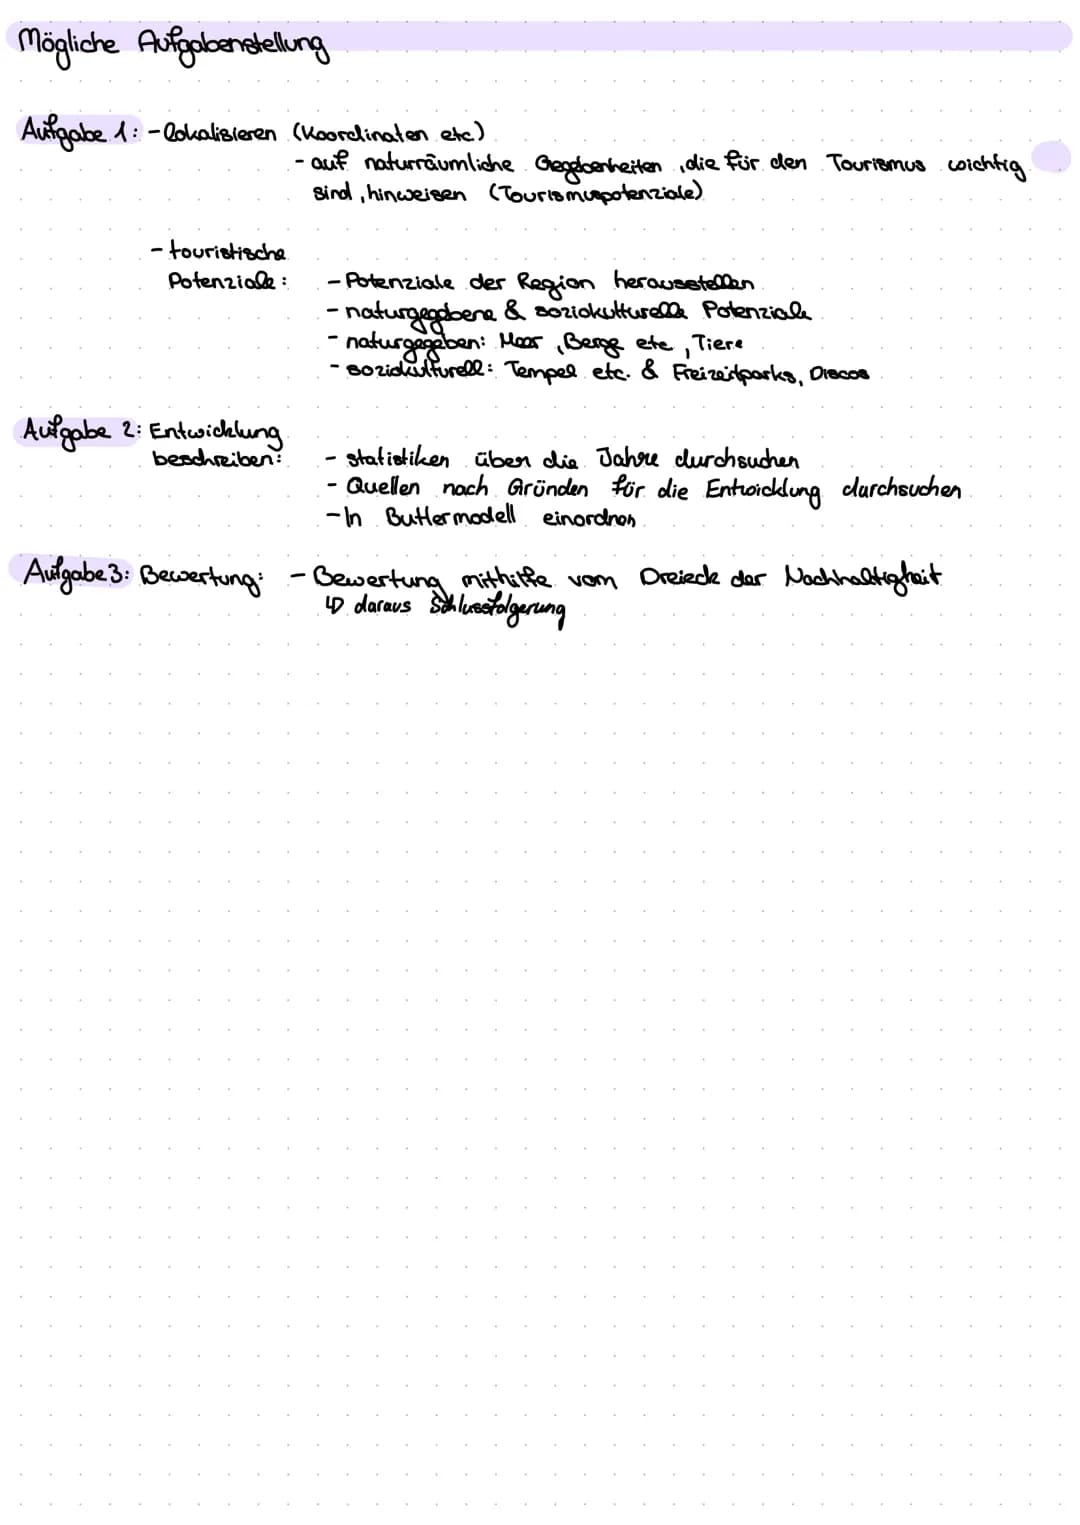 Mögliche Aufgabenstellung
Aufgabe 1: - lokalisieren (Koordinaten etc)
- auf naturräumliche Gegebenheiten, die für den Tourismus wichtig
sind, hinweisen (Tourismuspotenziale)
- touristische
Potenziale: - Potenziale der Region herausstellen
- naturgegebene & soziokulturelle Potenziale
- naturgegeben: Meer, Berge etc, Tiere
- soziokulturell: Tempel etc. & Freizeitparks, Discos
Aufgabe 2: Entwicklung
beschreiben: - statistiken über die Jahre durchsuchen
- Quellen nach Gründen für die Entwicklung durchsuchen
- In Butlermodell einordnen
Aufgabe 3: Bewertung: - Bewertung mithilfe vom Dreieck der Nachhaltigkeit
↳ daraus Schlussfolgerung